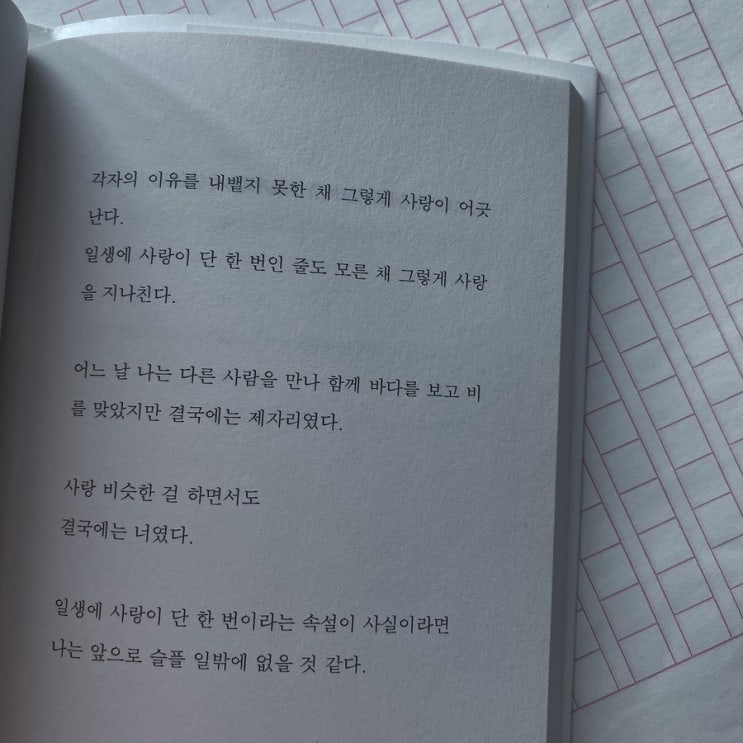 각자의 이유를 내뱉지 못한 채 그렇게 사랑이 어긋
난다.
일생에 사랑이 단 한 번인 줄도 모른 채 그렇게 사랑
을 지나친다.
어느 날 나는 다른 사람을 만나 함께 바다를 보고 비
를 맞았지만 결국에는 제자리였다.
사랑 비슷한 걸 하면서도
결국에는 너였다.
일생에 사랑이 단 한 번이라는 속설이 사실이라면
나는 앞으로 슬플 일밖에 없을 것 같다.